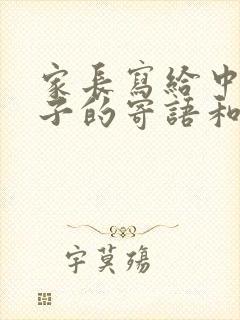 家長寫給中
子的寄語和
字莫殤